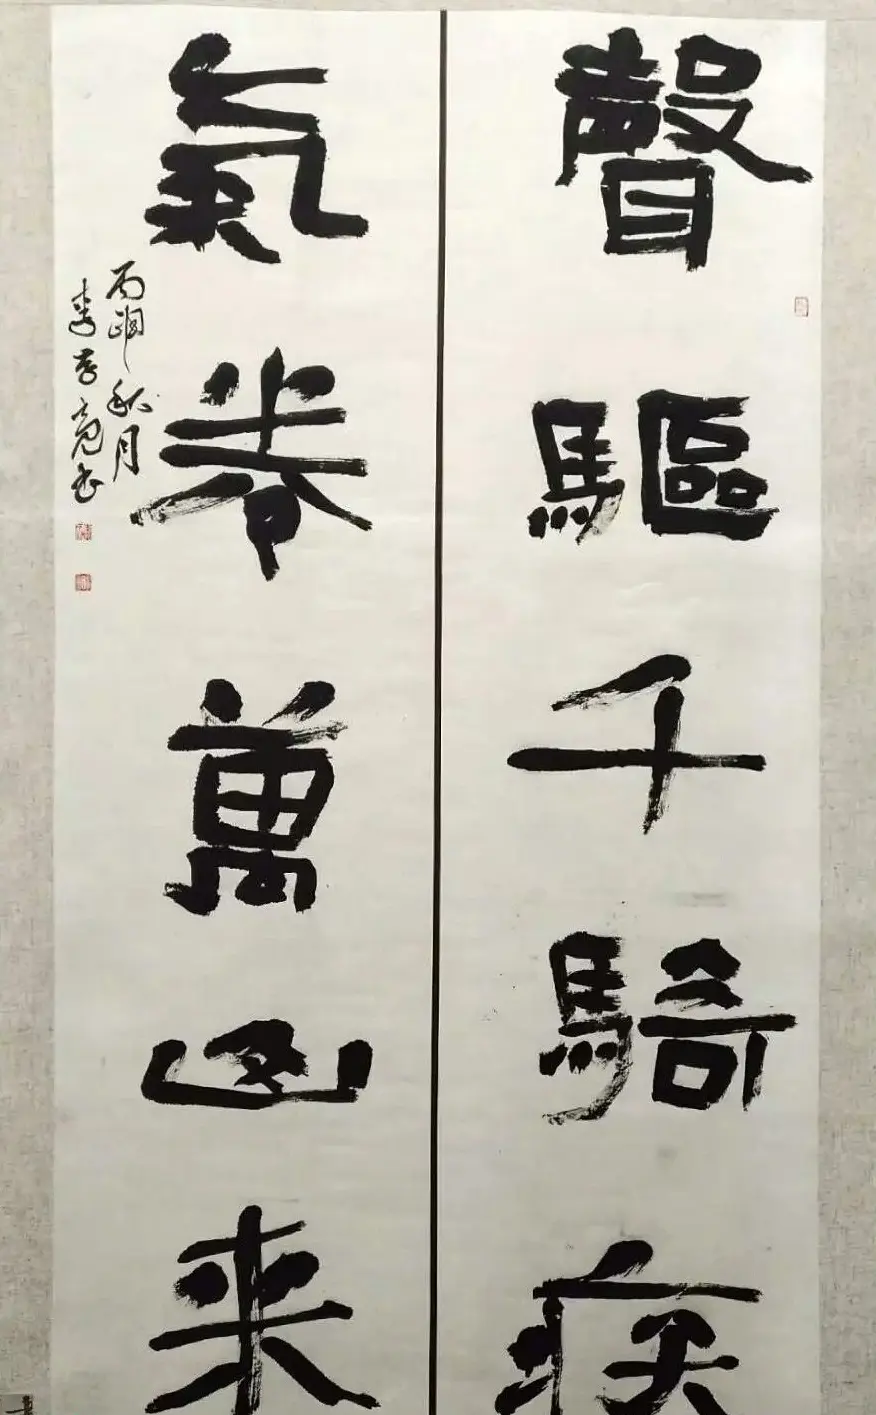 聲驅千騎疾
氣卷萬山來
丙申秋月
李
书